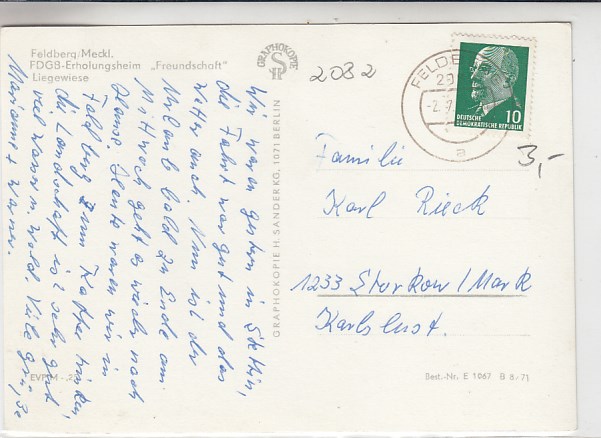 Feldberg/Meckl.
FDGB-Erholungsheim „Freundschaft"
Liegewiese
Wir waren gestern in Stettin,
die Fahrt war gut und das
Wetter auch. Nun ist der
Urlaub bald zu Ende am
Mittwoch geht es wieder nach
Hause. Heute waren wir in
Feldberg zum Kaffee trinken,
die Landschaft ist sehr schön
viel Wasser u. Wald. Viele Grüße
Marianne + Werner.
EVP M -,2
GRAPHOKOPIE
GRAPHOKOPIE H. SANDER KG, 1071 BERLIN
2082
FELDBE
10
DEUTSCHE
DEMOKRATISCHE REPUBLIK
a
3,-
Familie
Karl Rieck
1233 Storkow/Mark
Karlslust.
Best.-Nr. E 1067 B 8/71